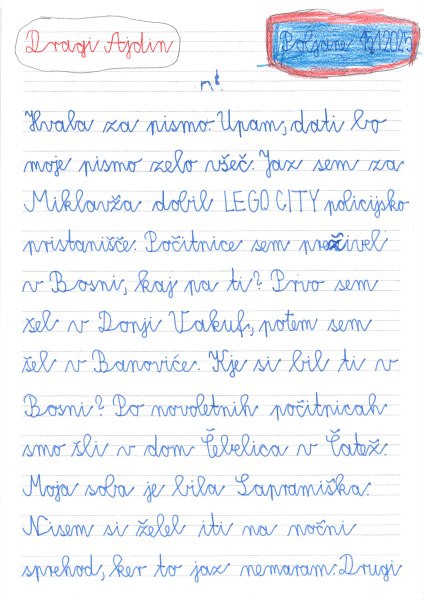 Dragi Ajdin
Poljane 1/1 2025
Hvala za pismo. Upam, dati bo
moje pismo zelo všeč. Jaz sem za
Miklavža dobil LEGO CITY policijsko
pristanišče. Počitnice sem preživel
v Bosni, kaj pa ti? Prvo sem
šel v Donji Vakuf, potem sem
šel v Banoviće. Kje si bil ti v
Bosni? Po novoletnih počitnicah
smo šli v dom Čebelica v Čatež.
Moja soba je bila Sapramiška.
Nisem si želel iti na nočni
sprehod, ker to jaz nemaram. Drugi